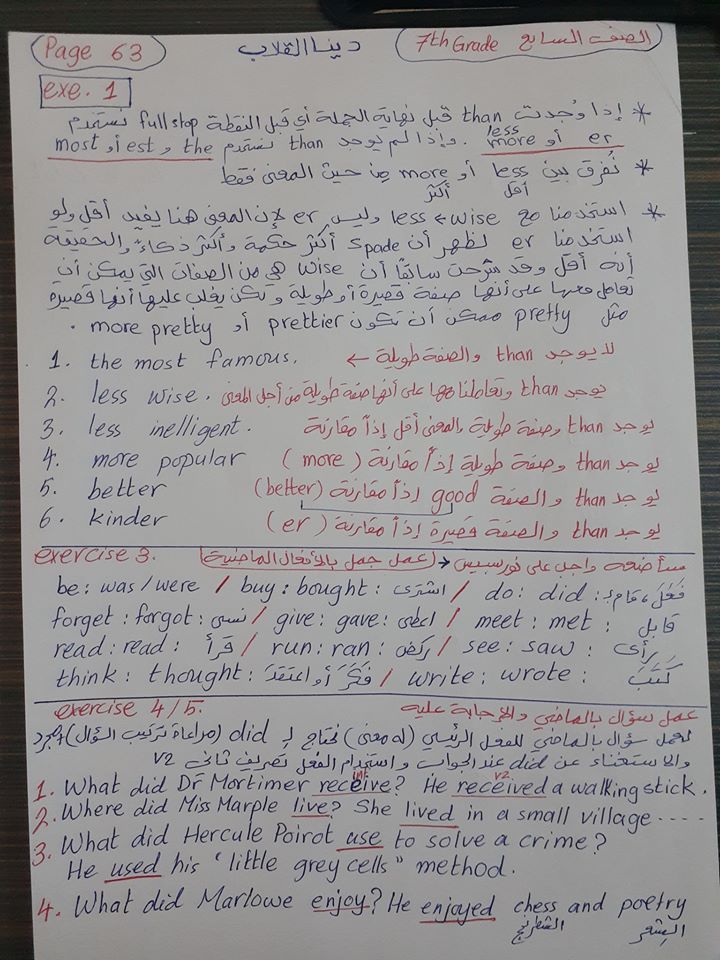 Page 63 دينا القلاب 7th Grade الصف السابع
exe. 1
* إذا وُجدت than قبل نهاية الجملة أي قبل النقطة full stop نستخدم
er أو more less . وإذا لم يوجد than نستخدم the و est أو most
* نُفرق بين less أو more من حيث المعنى فقط
أقل أكثر
* استخدمنا مع wise ← less وليس er لإن المعنى هنا يفيد أقل ولو
استخدمنا er لظهر أن Spade أكثر حكمة وأكثر ذكاءً والحقيقة
أنه أقل وقد شرحت سابقاً أن wise هي من الصفات التي يمكن أن
نعامل معها على أنها صفة قصيرة أو طويلة ولكن يغلب عليها أنها قصيرة
مثل pretty ممكن أن تكون prettier أو more pretty .
1. the most famous. ← لا يوجد than والصفة طويلة
2. less wise. يوجد than وتعاملنا معها على أنها صفة طويلة من أجل المعنى
3. less inelligent. يوجد than وصفة طويلة بالمعنى أقل إذاً مقارنة
4. more popular يوجد than وصفة طويلة إذاً مقارنة (more)
5. better يوجد than والصفة good إذاً مقارنة (better)
6. kinder يوجد than والصفة قصيرة إذاً مقارنة (er)
exercise 3. سأضعه واجب على نورسبيس ← (عمل جمل بالأفعال الماضية)
be: was/were / buy: bought: اشترى / do: did: فَعَلَ، قام بـ
forget: forgot: نسي / give: gave: اعطى / meet: met: قابل
read: read: قرأ / run: ran: ركض / see: saw: رأى
think: thought: فَكَّرَ أو اعتقدَ / write: wrote: كَتَبَ
exercise 4/5. عمل سؤال بالماضي والإجابة عليه
لعمل سؤال بالماضي للفعل الرئيسي (له معنى) نحتاج لـ did (مراعاة ترتيب السؤال) + مجرد
والاستغناء عن did عند الجواب واستخدام الفعل تصريف ثاني V2
1. What did Dr Mortimer receive? He received a walking stick.
inf V2
2. Where did Miss Marple live? She lived in a small village .....
3. What did Hercule Poirot use to solve a crime?
He used his ‘little grey cells” method.
4. What did Marlowe enjoy? He enjoyed chess and poetry
الشطرنج الشِعر